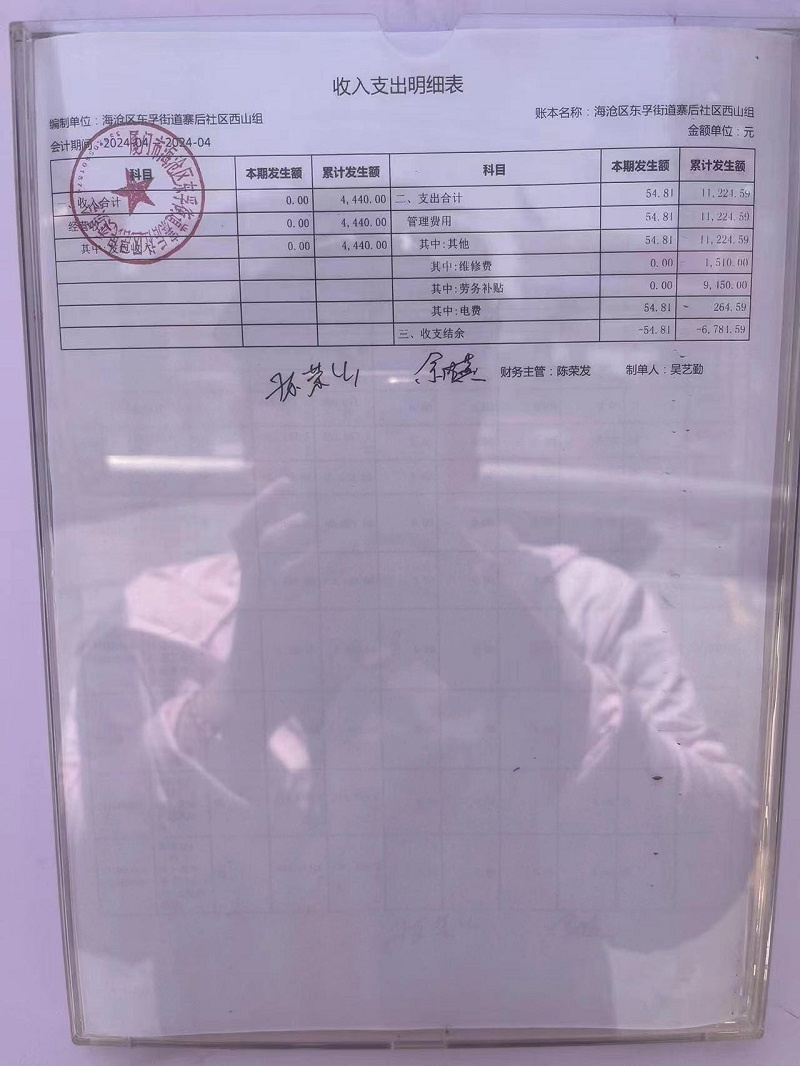 收入支出明细表
编制单位：海沧区东孚街道寨后社区西山组 账本名称：海沧区东孚街道寨后社区西山组
会计期间：2024-04—2024-04 金额单位：元
科目 本期发生额 累计发生额 科目 本期发生额 累计发生额
一、收入合计 0.00 4,440.00 二、支出合计 54.81 11,224.59
0.00 4,440.00 管理费用 54.81 11,224.59
0.00 4,440.00 其中:其他 54.81 11,224.59
其中:维修费 0.00 1,510.00
其中:劳务补贴 0.00 9,450.00
其中:电费 54.81 264.59
三、收支结余 -54.81 -6,784.59
陈荣山 财务主管：陈荣发 制单人：吴艺勤